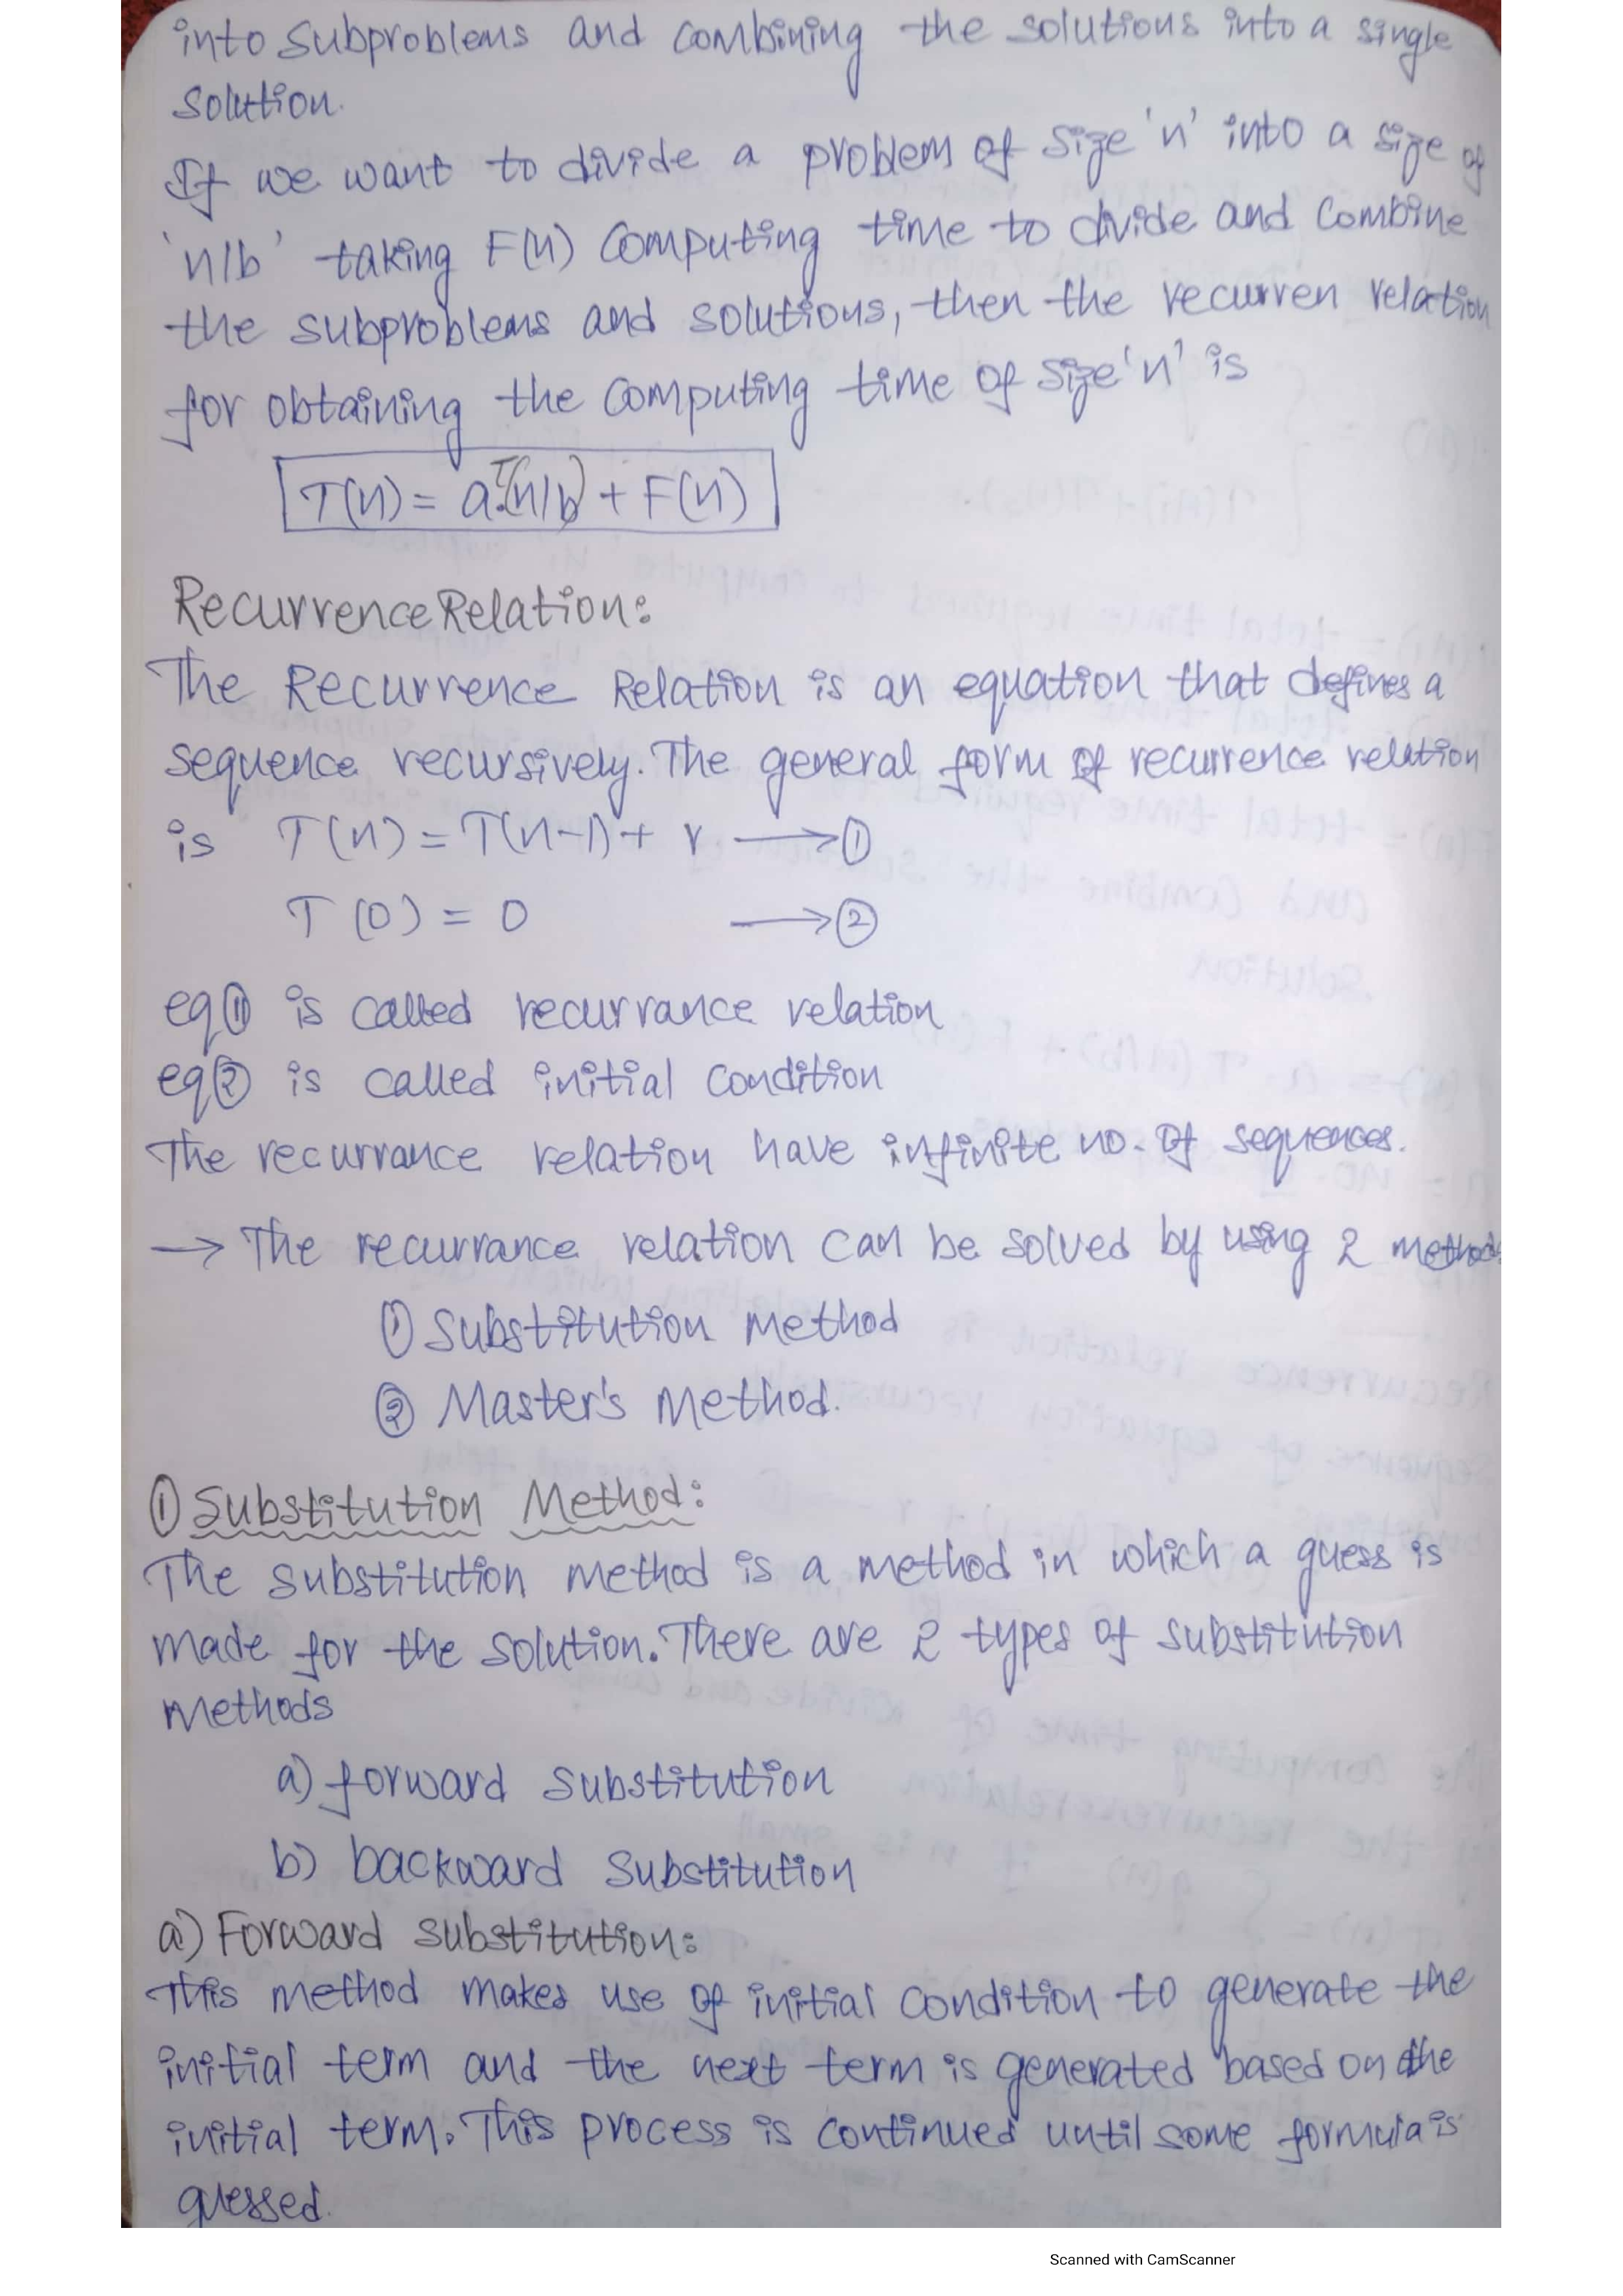 into subproblems and combining the solutions into a single
solution.
If we want to divide a problem of size 'n' into a size of
'n/b' taking F(n) computing time to divide and combine
the subproblems and solutions, then the recurren relation
for obtaining the computing time of size 'n' is
T(n) = a.T(n/b) + F(n)
Recurrence Relation:
The Recurrence Relation is an equation that defines a
sequence recursively. The general form of recurrence relation
is T(n) = T(n-1) + r → ①
T(0) = 0 → ②
eq① is called recurrance relation
eq② is called initial condition
The recurrance relation have infinite no. of sequences.
→ The recurrance relation can be solved by using 2 method
① Substitution method
② Master's method.
① Substitution Method:
The substitution method is a method in which a guess is
made for the solution. There are 2 types of substitution
methods
a) forward substitution
b) backward substitution
a) Forward substitution:
This method makes use of initial condition to generate the
initial term and the next term is generated based on the
initial term. This process is continued until some formula is
guessed.
Scanned with CamScanner